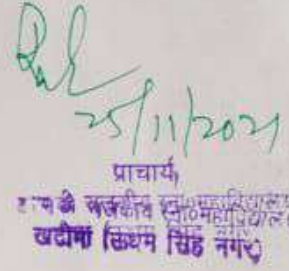 25/11/2021
प्राचार्य,
राजकीय स्ना०महाविद्यालय
खटीमा (ऊधम सिंह नगर)